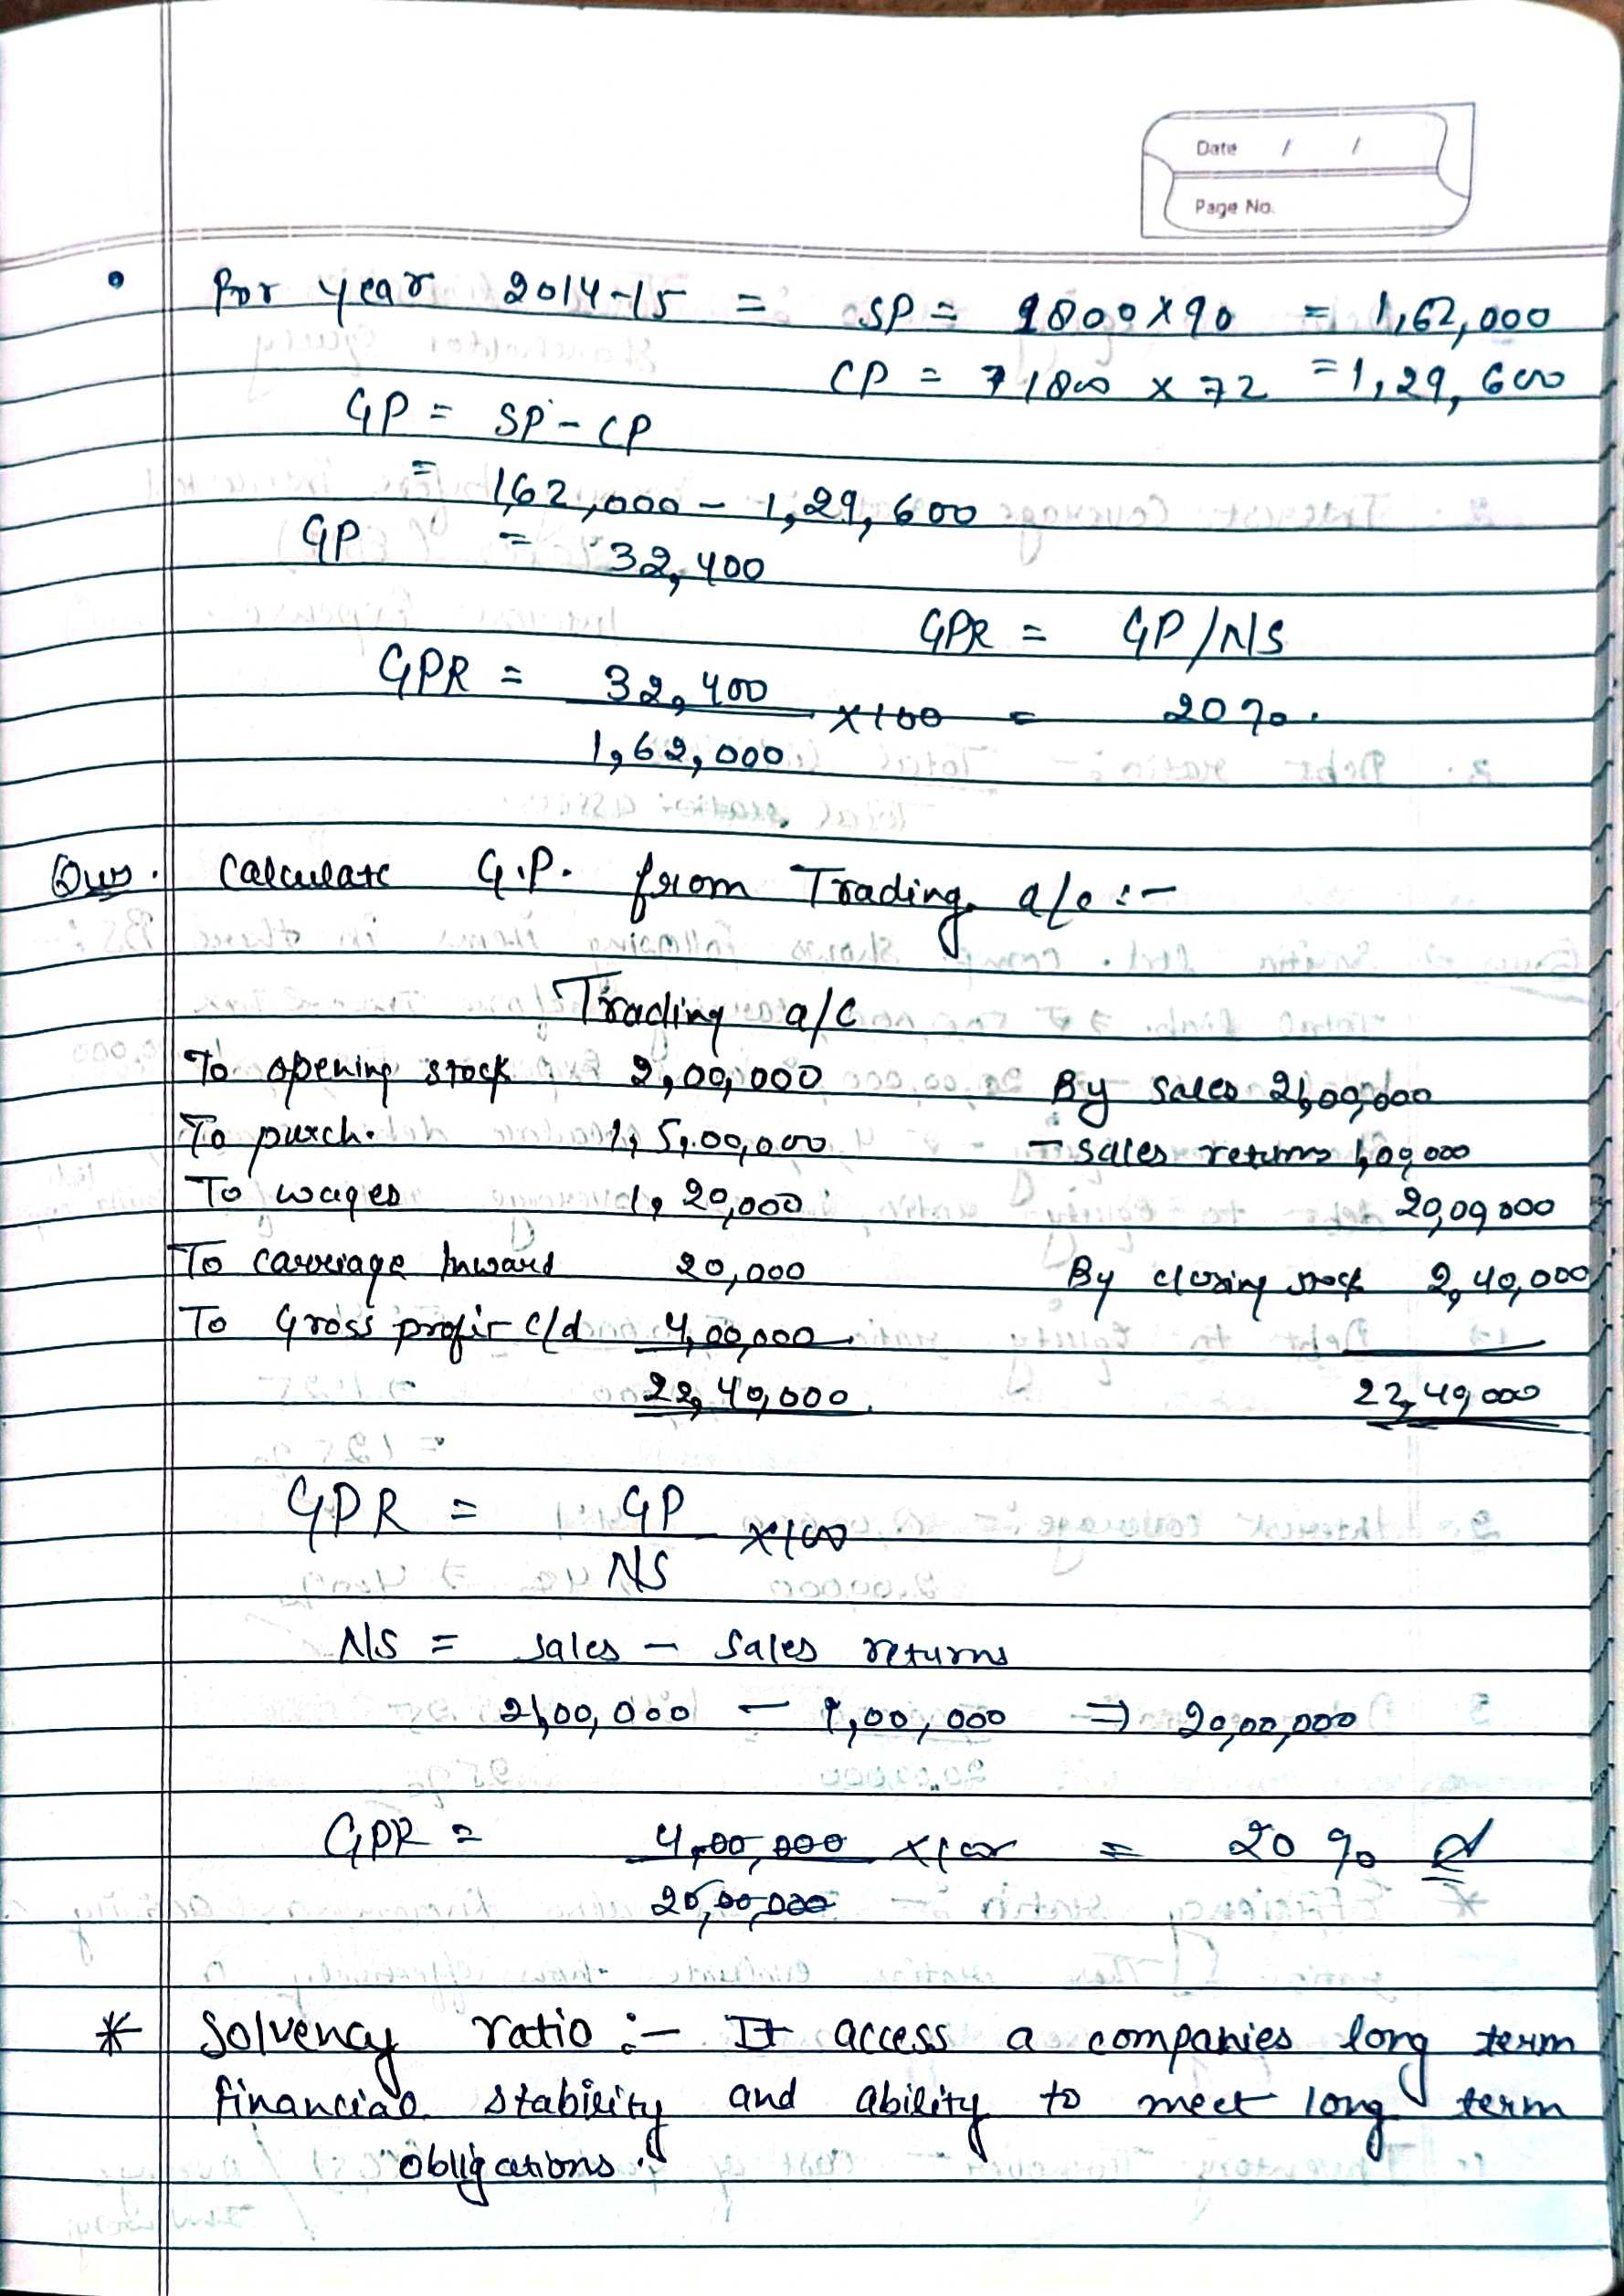 Date / /
Page No.
For year 2014-15 = SP = 1800 x 90 = 1,62,000
CP = 1800 x 72 = 1,29,600
GP = SP - CP
= 1,62,000 - 1,29,600
GP = 32,400
GPR = GP/NS
GPR = 32,400 x100 = 20%.
1,62,000
Ques. Calculate G.P. from Trading a/c :-
Trading a/c
To opening stock 2,00,000 By Sales 21,00,000
To purch. 15,00,000 - Sales returns 1,00,000
To wages 1,20,000 20,00,000
To carriage Inward 20,000 By closing stock 2,40,000
To Gross profit c/d 4,00,000
22,40,000 22,40,000
GPR = GP x100
NS
NS = Sales - Sales returns
21,00,000 - 1,00,000 ⇒ 20,00,000
GPR = 4,00,000 x100 = 20%
20,00,000
* Solvency ratio :- It access a companies long term
financial stability and ability to meet long term
obligations.